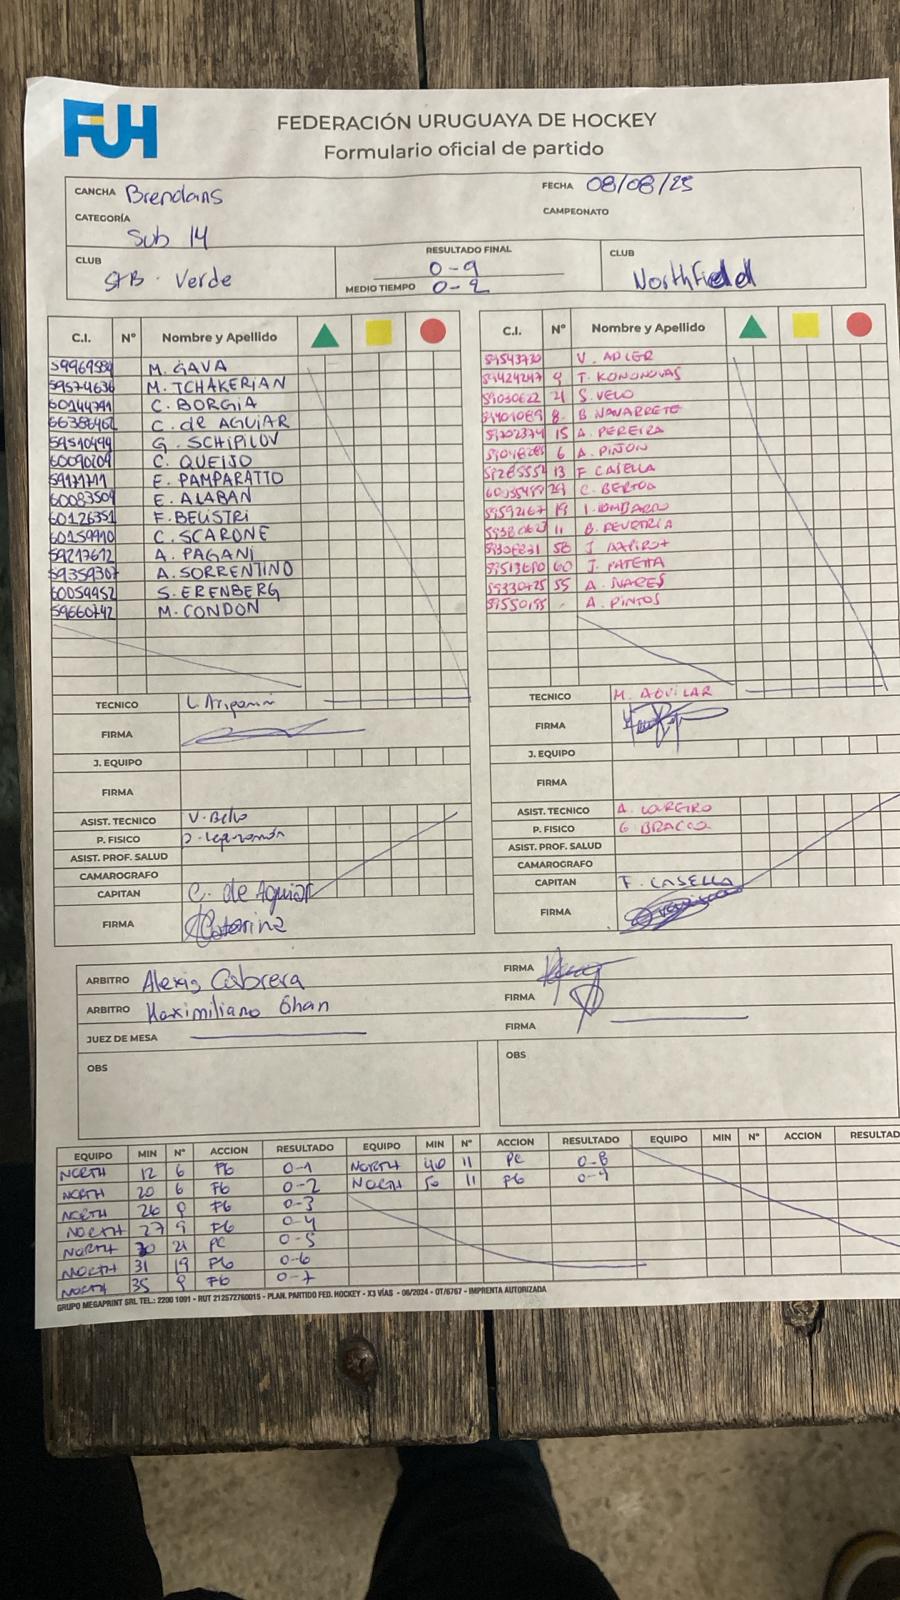 FUH
FEDERACIÓN URUGUAYA DE HOCKEY
Formulario oficial de partido
CANCHA Brendans
FECHA 08/08/25
CATEGORÍA Sub 14
CAMPEONATO
CLUB STB. Verde
RESULTADO FINAL 0-9
MEDIO TIEMPO 0-2
CLUB Northfield
C.I. Nº Nombre y Apellido
M. GAVA
59574636 M. TCHAKERIAN
60144791 C. BORGIA
66386462 C. de AGUIAR
59510499 G. SCHIPILOV
60090209 C. QUEIJO
E. PAMPARATTO
60083509 E. ALABAN
60126351 F. BELISTRI
60159910 C. SCARONE
59217612 A. PAGANI
59359307 A. SORRENTINO
60059452 S. ERENBERG
59660742 M. CONDON
TECNICO
FIRMA
J. EQUIPO
FIRMA
ASIST. TECNICO V. Bello
P. FISICO
ASIST. PROF. SALUD
CAMAROGRAFO
CAPITAN C. de Aguiar
FIRMA Caterina
C.I. Nº Nombre y Apellido
V. ADLER
59424247 9 T. KONONOVAS
59030622 21 S. VELO
8 B NAVARRETE
15 A. PEREIRA
6 A. PIÑON
13 F CASELLA
C. BERTOA
19
11
50
60 J. PATETTA
55
A. PINTOS
TECNICO M. AGUILAR
FIRMA
J. EQUIPO
FIRMA
ASIST. TECNICO A. LOREIRO
P. FISICO G. BRACCO
ASIST. PROF. SALUD
CAMAROGRAFO
CAPITAN F. CASELLA
FIRMA
ARBITRO Alexis Cabrera FIRMA
ARBITRO Maximiliano Ghan FIRMA
JUEZ DE MESA FIRMA
OBS
OBS
EQUIPO MIN Nº ACCION RESULTADO EQUIPO MIN Nº ACCION RESULTADO EQUIPO MIN Nº ACCION RESULTAD
NORTH 12 6 FG 0-1 NORTH 40 11 PC 0-8
NORTH 20 6 FG 0-2 NORTH 50 11 FG 0-9
NORTH 26 9 FG 0-3
NORTH 27 9 FG 0-4
NORTH 30 21 PC 0-5
NORTH 31 19 FG 0-6
NORTH 35 9 FG 0-7
GRUPO MEGAPRINT SRL TEL.: 2200 1091 - RUT 212572760015 - PLAN. PARTIDO FED. HOCKEY - X3 VÍAS - 06/2024 - OT/6767 - IMPRENTA AUTORIZADA